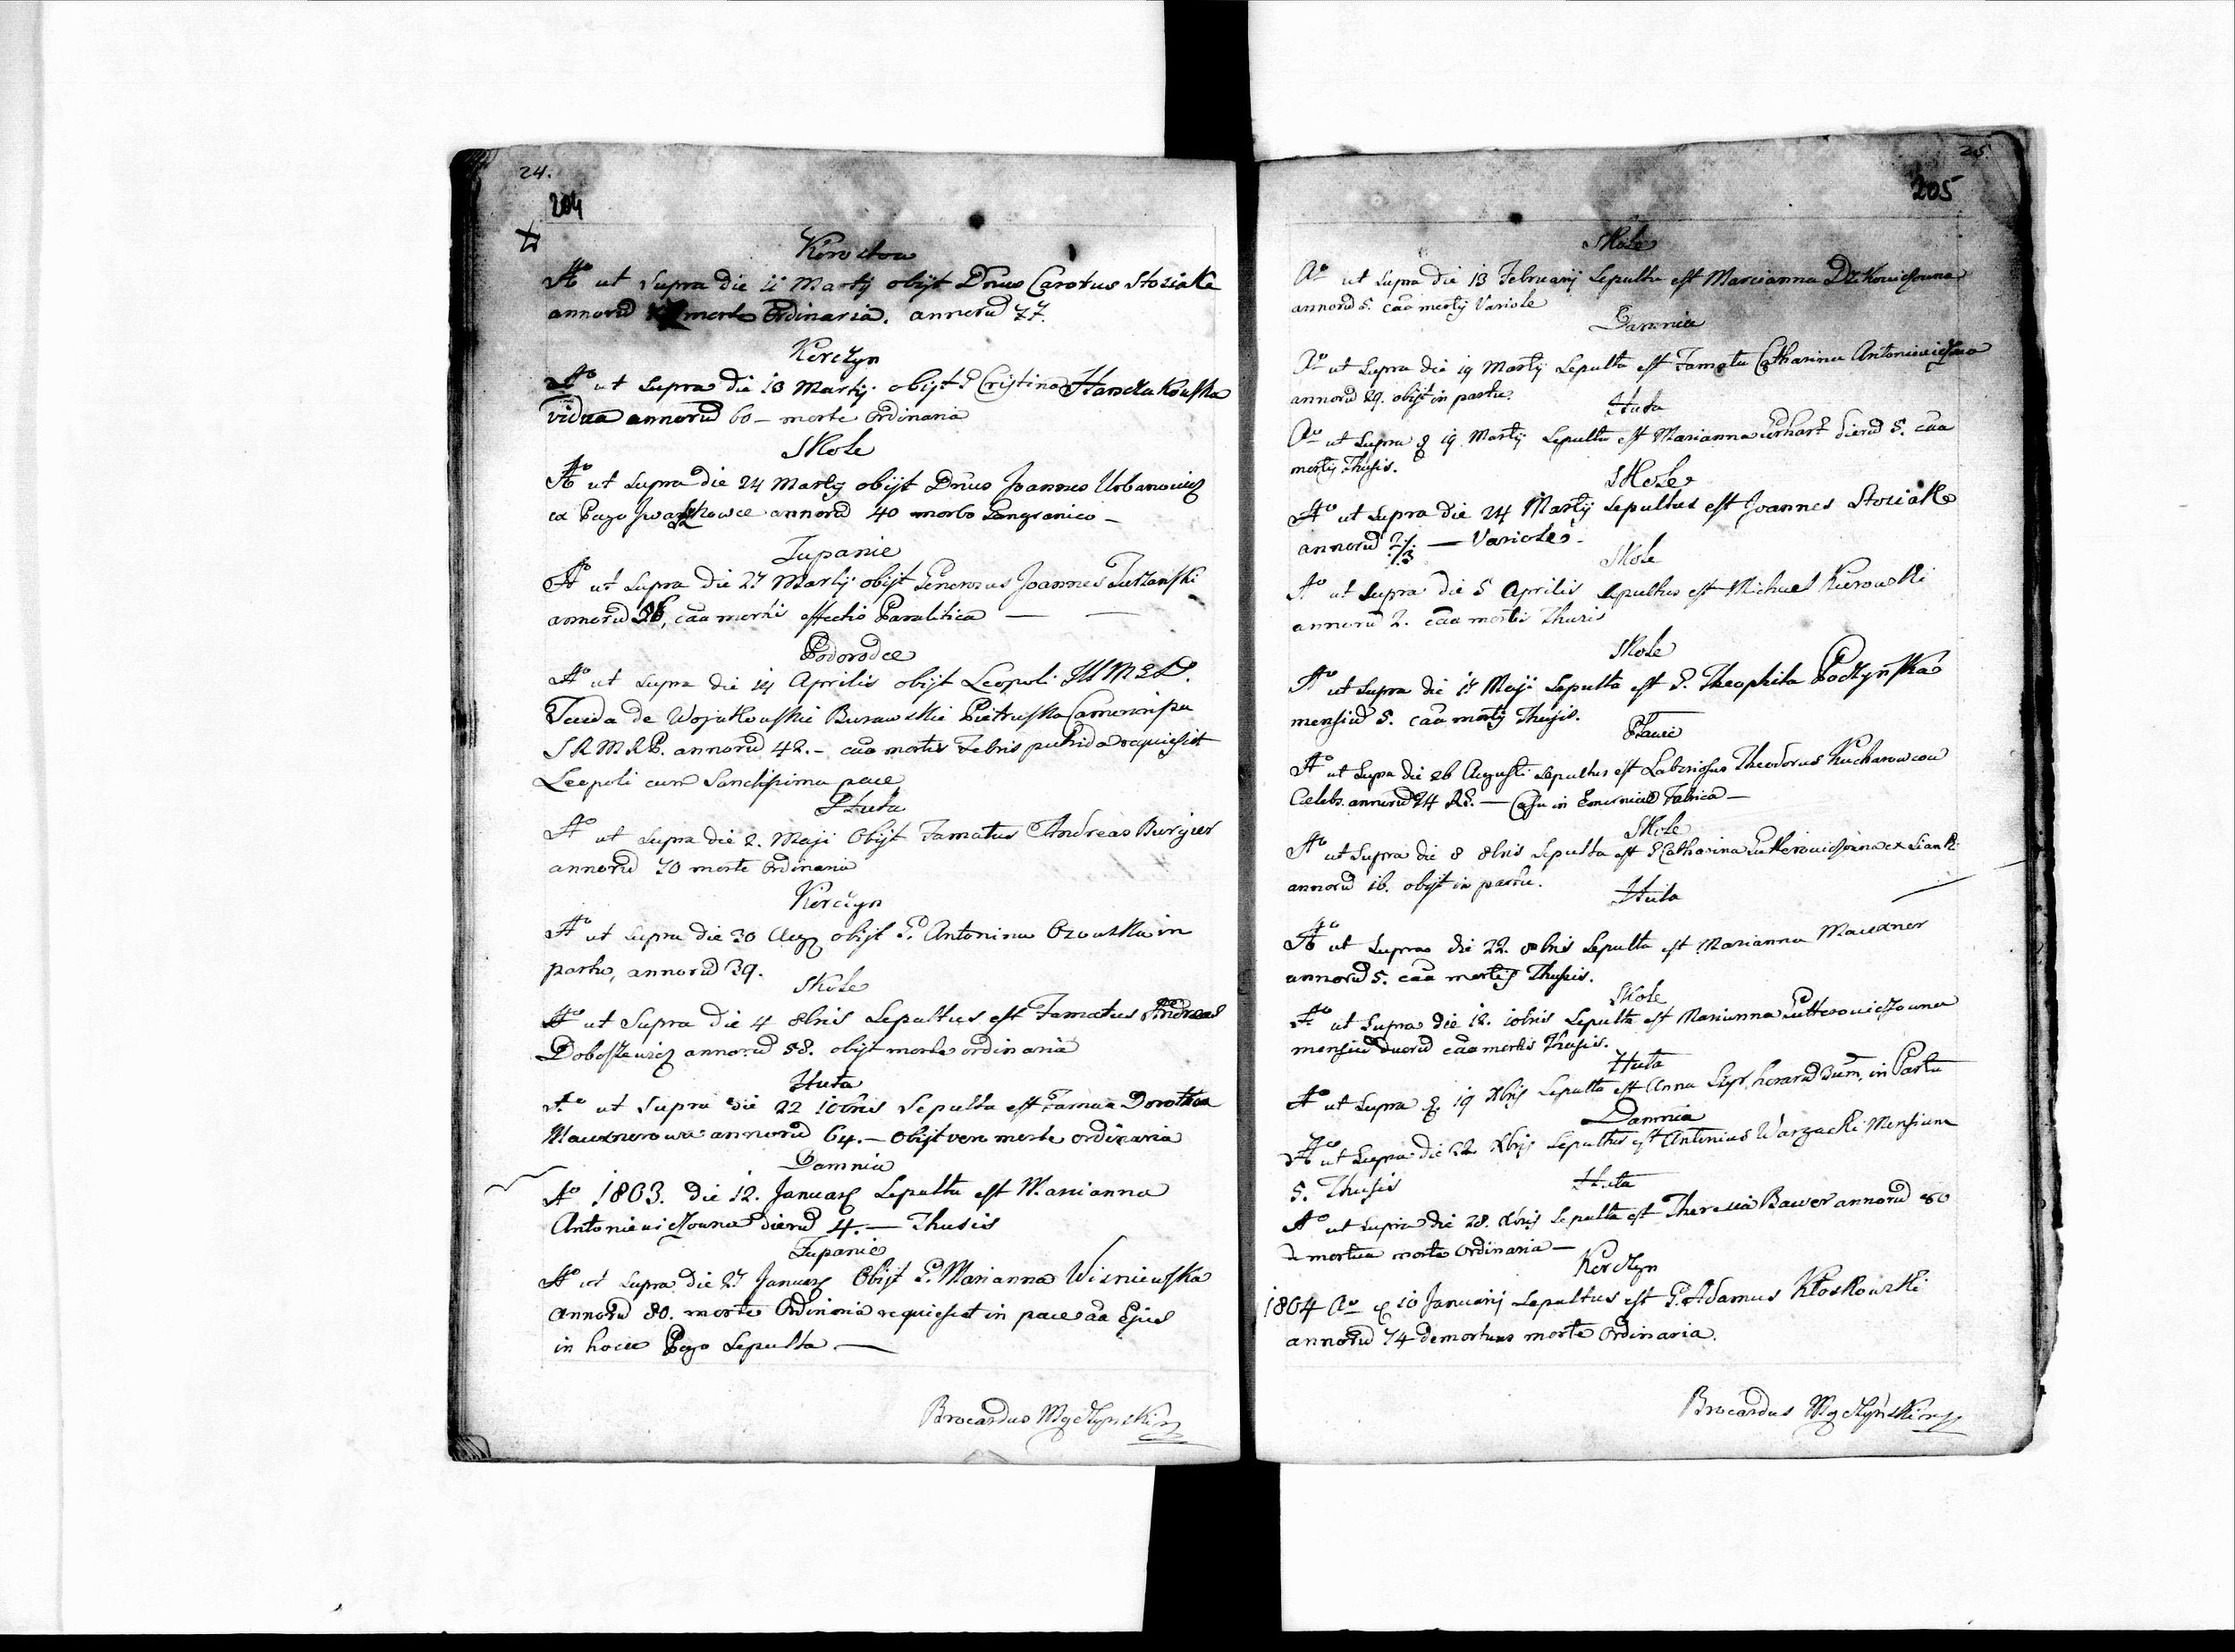 24.
204
Korostow
Ao ut Supra die 11 Martij obijt Dnus Carolus Stoziake
annorū morte Ordinaria. annorū 77.
Korczyn
Ao ut Supra die 13 Martij obijt G Cristina
vidua annorū 60 – morte Ordinaria
Skole
Ao ut Supra die 24 Martij obijt Dnus Joannes Urbanowicz
ex Pago Jwaszkowce annorū 40 morbo Gangranico –
Tupanie
Ao ut Supra die 27 Martij obijt Generosus Joannes Turzanski
annorū caa mortis effectio Paralitica —
Podorodce
Ao ut Supra die 14 Aprilis obijt Leopoli
de Wojutkouskie Burawskie Pietruska
S R M R P. annorū 42. – caa mortis Febris putrida requiesit
Leopoli cum Sanctissima pace
Huta
Ao ut Supra die 2. Maji Obijt Famatus Andreas Burgier
annorū 70 morte Ordinaria
Korczyn
Ao ut Supra die 30 Aug obijt G. Antonina Ozouska in
partu, annorū 39.
Skole
Ao ut Supra die 4 8bris Sepultus est Famatus Andreas
Doboszewicz annorū 58. obijt morte ordinaria
Huta
Ao ut Supra die 22 10bris Sepulta est Famata Dorothea
Mauxnerowa annorū 64. – Obijt vero morte ordinaria
Damnia
Ao 1803. die 12. Januarij Sepulta est Marianna
Antonieuiczouna dierū 4. — Thusis
Tupanie
Ao ut Supra die 27 Januarij Obijt G. Marianna Wisniewska
annorū 80. morte Ordinaria requiesit in pace aa Ejus
in hocce Pago Sepulta —
Brocardus Mączynski
25.
205
Skole
Ao ut Supra die 13 Februarij Sepulta est Marcianna
annorū 5. caa mortij Variole
Damnia
Ao ut Supra die 19 Martij Sepulta est Famata Catharina
annorū 29. obijt in partu.
Huta
Ao ut Supra 19 Martij Sepulta est Marianna Erhart dierū 5. caa
mortij Thusis.
Skole
Ao ut Supra die 24 Martij Sepultus est Joannes Stoziake
annorū — Variole –
Skole
Ao ut Supra die 5 Aprilis Sepultus est Michael Kurowski
annorū 2. caa mortis Thusis
Skole
Ao ut Supra die Maji Sepulta est G. Theophila
mensiū 5. caa mortij Thusis.
Plauie
Ao ut Supra die 26 Augusti Sepultus est Laboriosus Theodorus
Celebs. annorū 24 — Casu in Fabrica —
Skole
Ao ut Supra die 8 8bris Sepulta est Catharina
annorū 16. obijt in partu.
Huta
Ao ut Supra die 22. 8bris Sepulta est Marianna Mauxner
annorū 5. caa mortis Thusis.
Skole
Ao ut Supra die 12. 10bris Sepulta est Marianna Lutterouiczouna
mensiū duorū caa mortis Thusis.
Huta
Ao ut Supra 19 Xbris Sepulta est Anna horarū 3um, in Partu
Damnia
Ao ut Supra die 22 Xbris Sepultus est Antonius Warzacki Mensium
5. Thusis
Huta
Ao ut Supra die 28. Xbris Sepulta est Theresia Bawer annorū 80
demortua morte Ordinaria —
Korczyn
1804 Ao 10 Januarij Sepultus est G. Adamus Kłoskowski
annorū 74 demortuus morte Ordinaria.
Brocardus Mączyński